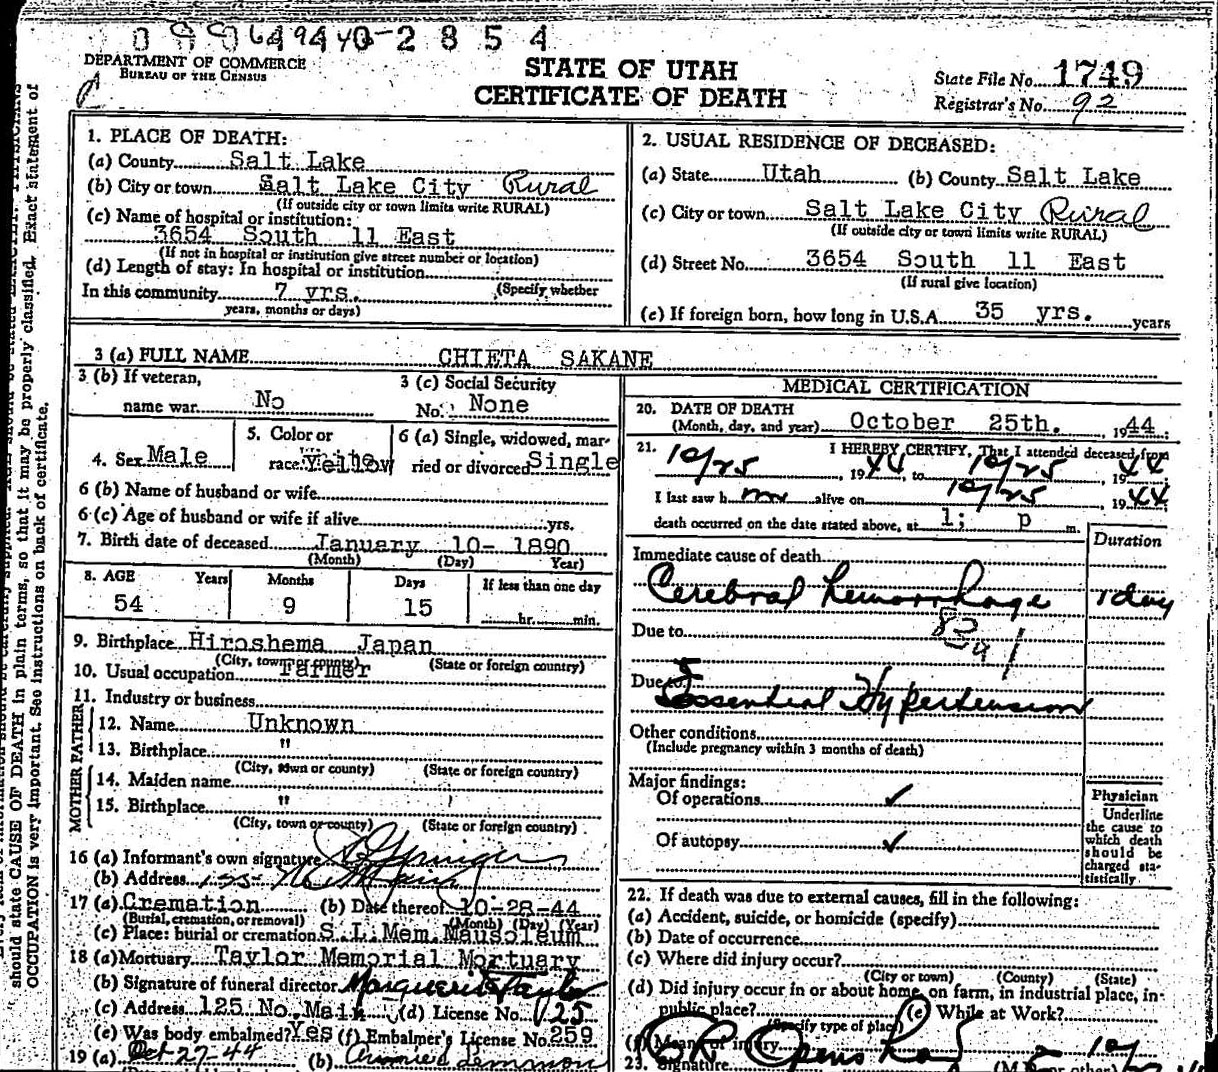 649440-2854
DEPARTMENT OF COMMERCE
BUREAU OF THE CENSUS
STATE OF UTAH
CERTIFICATE OF DEATH
State File No. 1749
Registrar's No. 92
1. PLACE OF DEATH:
(a) County Salt Lake
(b) City or town Salt Lake City Rural
(If outside city or town limits write RURAL)
(c) Name of hospital or institution:
3654 South 11 East
(If not in hospital or institution give street number or location)
(d) Length of stay: In hospital or institution
In this community 7 yrs. (Specify whether
years, months or days)
2. USUAL RESIDENCE OF DECEASED:
(a) State Utah (b) County Salt Lake
(c) City or town Salt Lake City Rural
(If outside city or town limits write RURAL)
(d) Street No. 3654 South 11 East
(If rural give location)
(e) If foreign born, how long in U.S.A. 35 yrs. years
3 (a) FULL NAME CHIETA SAKANE
3 (b) If veteran,
name war No
3 (c) Social Security
No. None
4. Sex Male
5. Color or
race Yellow
6 (a) Single, widowed, mar-
ried or divorced Single
6 (b) Name of husband or wife
6 (c) Age of husband or wife if alive yrs.
7. Birth date of deceased January 10- 1890
(Month) (Day) Year)
8. AGE Years Months Days If less than one day
54 9 15 hr. min.
9. Birthplace Hiroshema Japan
(City, town or county) (State or foreign country)
10. Usual occupation Farmer
11. Industry or business
FATHER
12. Name Unknown
13. Birthplace "
(City, town or county) (State or foreign country)
MOTHER
14. Maiden name
15. Birthplace "
(City, town or county) (State or foreign country)
16 (a) Informant's own signature
(b) Address
17 (a) Cremation (b) Date thereof 10-28-44
(Burial, cremation, or removal) (Month) (Day) (Year)
(c) Place: burial or cremation S.L. Mem. Mausoleum
18 (a) Mortuary Taylor Memorial Mortuary
(b) Signature of funeral director Marguerite Taylor
(c) Address 125 No. Main (d) License No. 125
(e) Was body embalmed? Yes (f) Embalmer's License No. 259
19 (a) Oct 27-44 (b)
MEDICAL CERTIFICATION
20. DATE OF DEATH
(Month, day, and year) October 25th. , 1944.
21. I HEREBY CERTIFY, That I attended deceased from
10/25, 1944, to 10/25, 1944
I last saw h im alive on 10/25, 1944
death occurred on the date stated above, at 1; p m.
Duration
Immediate cause of death
Cerebral hemorrhage 1 day
Due to
Due to
Essential Hypertension
Other conditions
(Include pregnancy within 3 months of death)
Major findings:
Of operations ✓
Of autopsy ✓
Physician
Underline
the cause to
which death
should be
charged sta-
tistically.
22. If death was due to external causes, fill in the following:
(a) Accident, suicide, or homicide (specify)
(b) Date of occurrence
(c) Where did injury occur?
(City or town) (County) (State)
(d) Did injury occur in or about home, on farm, in industrial place, in-
public place? (e) While at Work?
(Specify type of place)
(f) Means of injury
23. Signature (M.D. or other)
should state CAUSE OF DEATH in plain terms, so that it may be properly classified. Exact statement of
OCCUPATION is very important. See instructions on back of certificate.